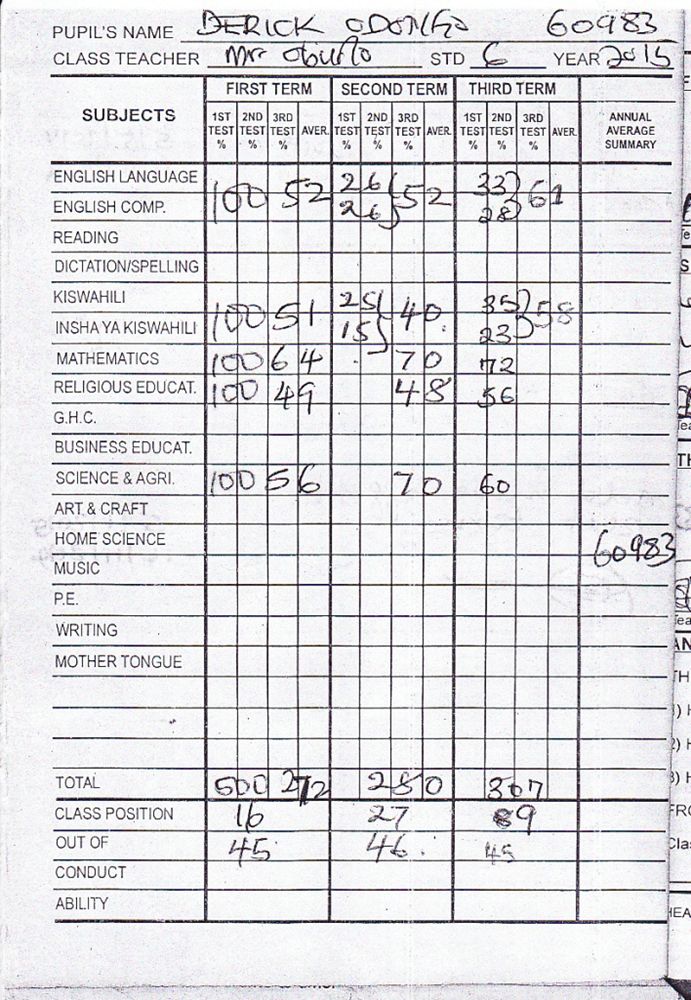 PUPIL'S NAME DERICK ODONGO 60983
CLASS TEACHER Mr STD 6 YEAR 2015
FIRST TERM SECOND TERM THIRD TERM
SUBJECTS 1ST TEST % 2ND TEST % 3RD TEST % AVER. 1ST TEST % 2ND TEST % 3RD TEST % AVER. 1ST TEST % 2ND TEST % 3RD TEST % AVER. ANNUAL AVERAGE SUMMARY
ENGLISH LANGUAGE 100 52 26 52 33 61
ENGLISH COMP. 26 28
READING
DICTATION/SPELLING
KISWAHILI 100 51 25 40 35 58
INSHA YA KISWAHILI 15 23
MATHEMATICS 100 64 70 72
RELIGIOUS EDUCAT. 100 49 48 56
G.H.C.
BUSINESS EDUCAT.
SCIENCE & AGRI. 100 56 70 60
ART & CRAFT
HOME SCIENCE 60983
MUSIC
P.E.
WRITING
MOTHER TONGUE
TOTAL 500 272 280 307
CLASS POSITION 16 27 9
OUT OF 45 46 45
CONDUCT
ABILITY